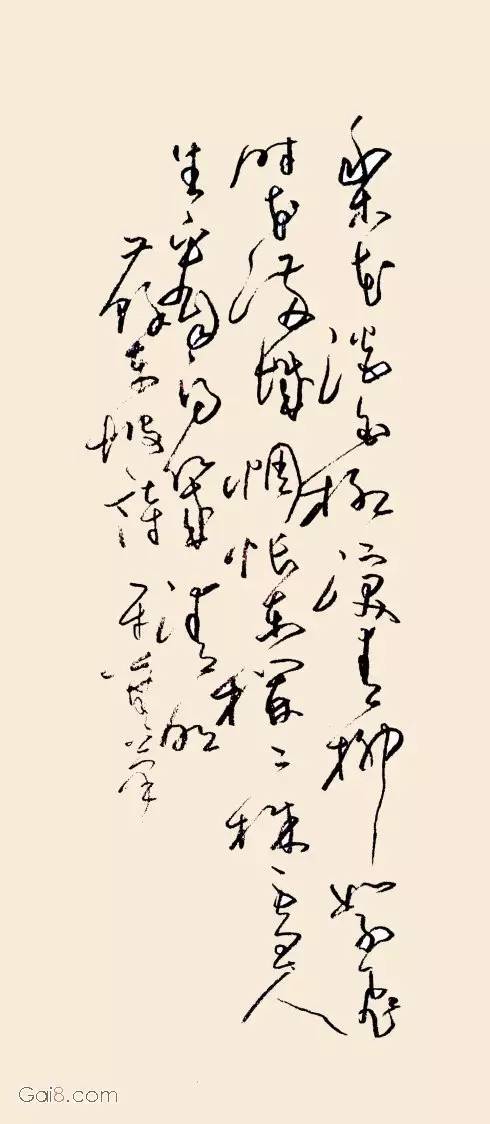 梨花淡白柳深青柳絮飞
时花满城惆怅东栏二株雪人
生看得几清明
苏东坡诗
Gai8.com